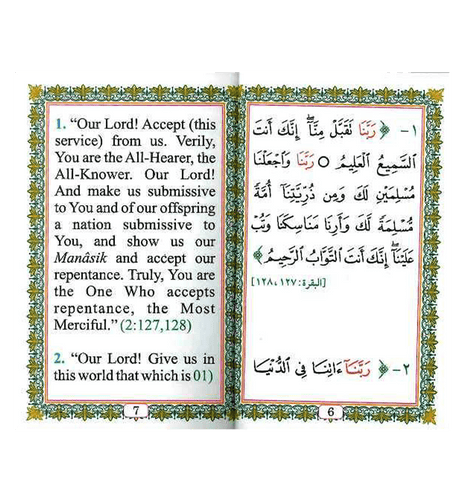 ١- ﴿ رَبَّنَا تَقَبَّلْ مِنَّآ إِنَّكَ أَنتَ
السَّمِيعُ الْعَلِيمُ ○ رَبَّنَا وَاجْعَلْنَا
مُسْلِمَيْنِ لَكَ وَمِن ذُرِّيَّتِنَآ أُمَّةً
مُّسْلِمَةً لَّكَ وَأَرِنَا مَنَاسِكَنَا وَتُبْ
عَلَيْنَآ إِنَّكَ أَنتَ التَّوَّابُ الرَّحِيمُ ﴾
[البقرة: ١٢٧، ١٢٨]
٢- ﴿ رَبَّنَآ ءَاتِنَا فِي الدُّنْيَا
6
1. “Our Lord! Accept (this
service) from us. Verily,
You are the All-Hearer, the
All-Knower. Our Lord!
And make us submissive
to You and of our offspring
a nation submissive to
You, and show us our
Manâsik and accept our
repentance. Truly, You are
the One Who accepts
repentance, the Most
Merciful.” (2:127,128)
2. “Our Lord! Give us in
this world that which is 01)
7